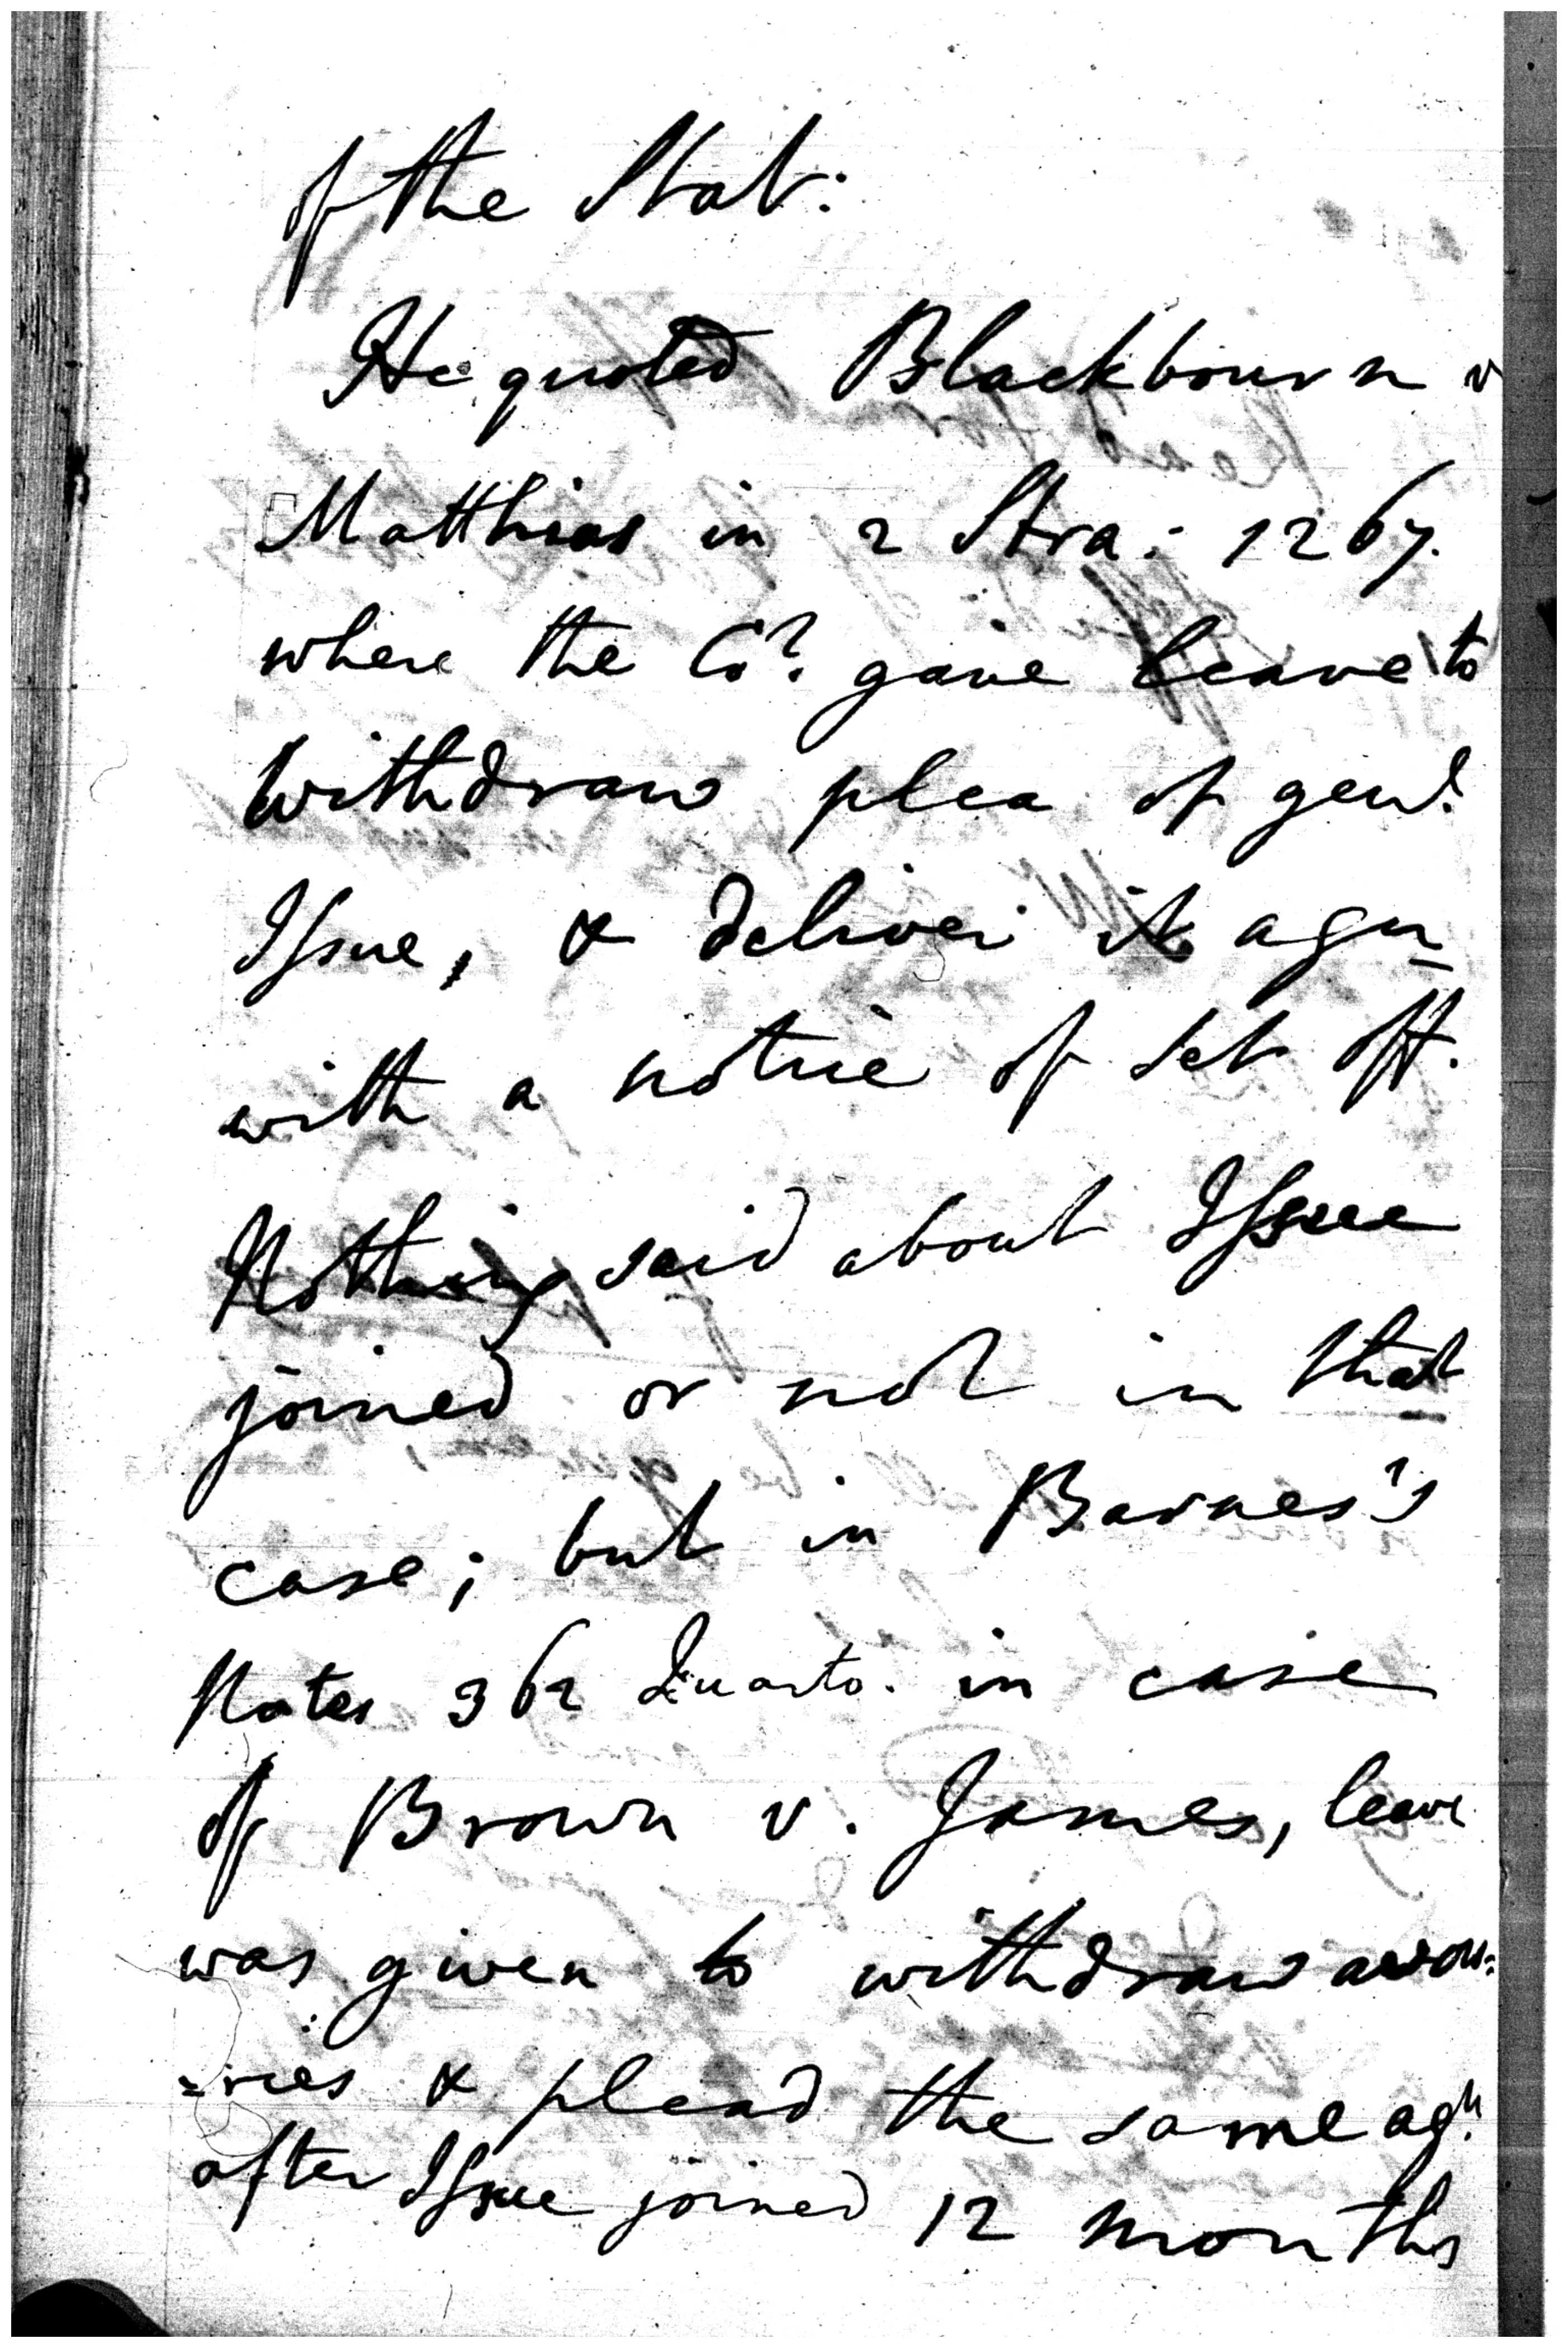 of the Stat:
He quoted Blackbourn v
Matthias in 2 Stra: 1267.
where the Ct. gave leave to
withdraw plea of genl.
Issue, & deliver it agn
with a notice of set off.
Nothing said about Issue
joined or not in that
case; but in Barnes's
Notes 362 Quarto. in case
of Brown v. James, leave
was given to withdraw avow=
=ries & plead the same agn.
after Issue joined 12 months